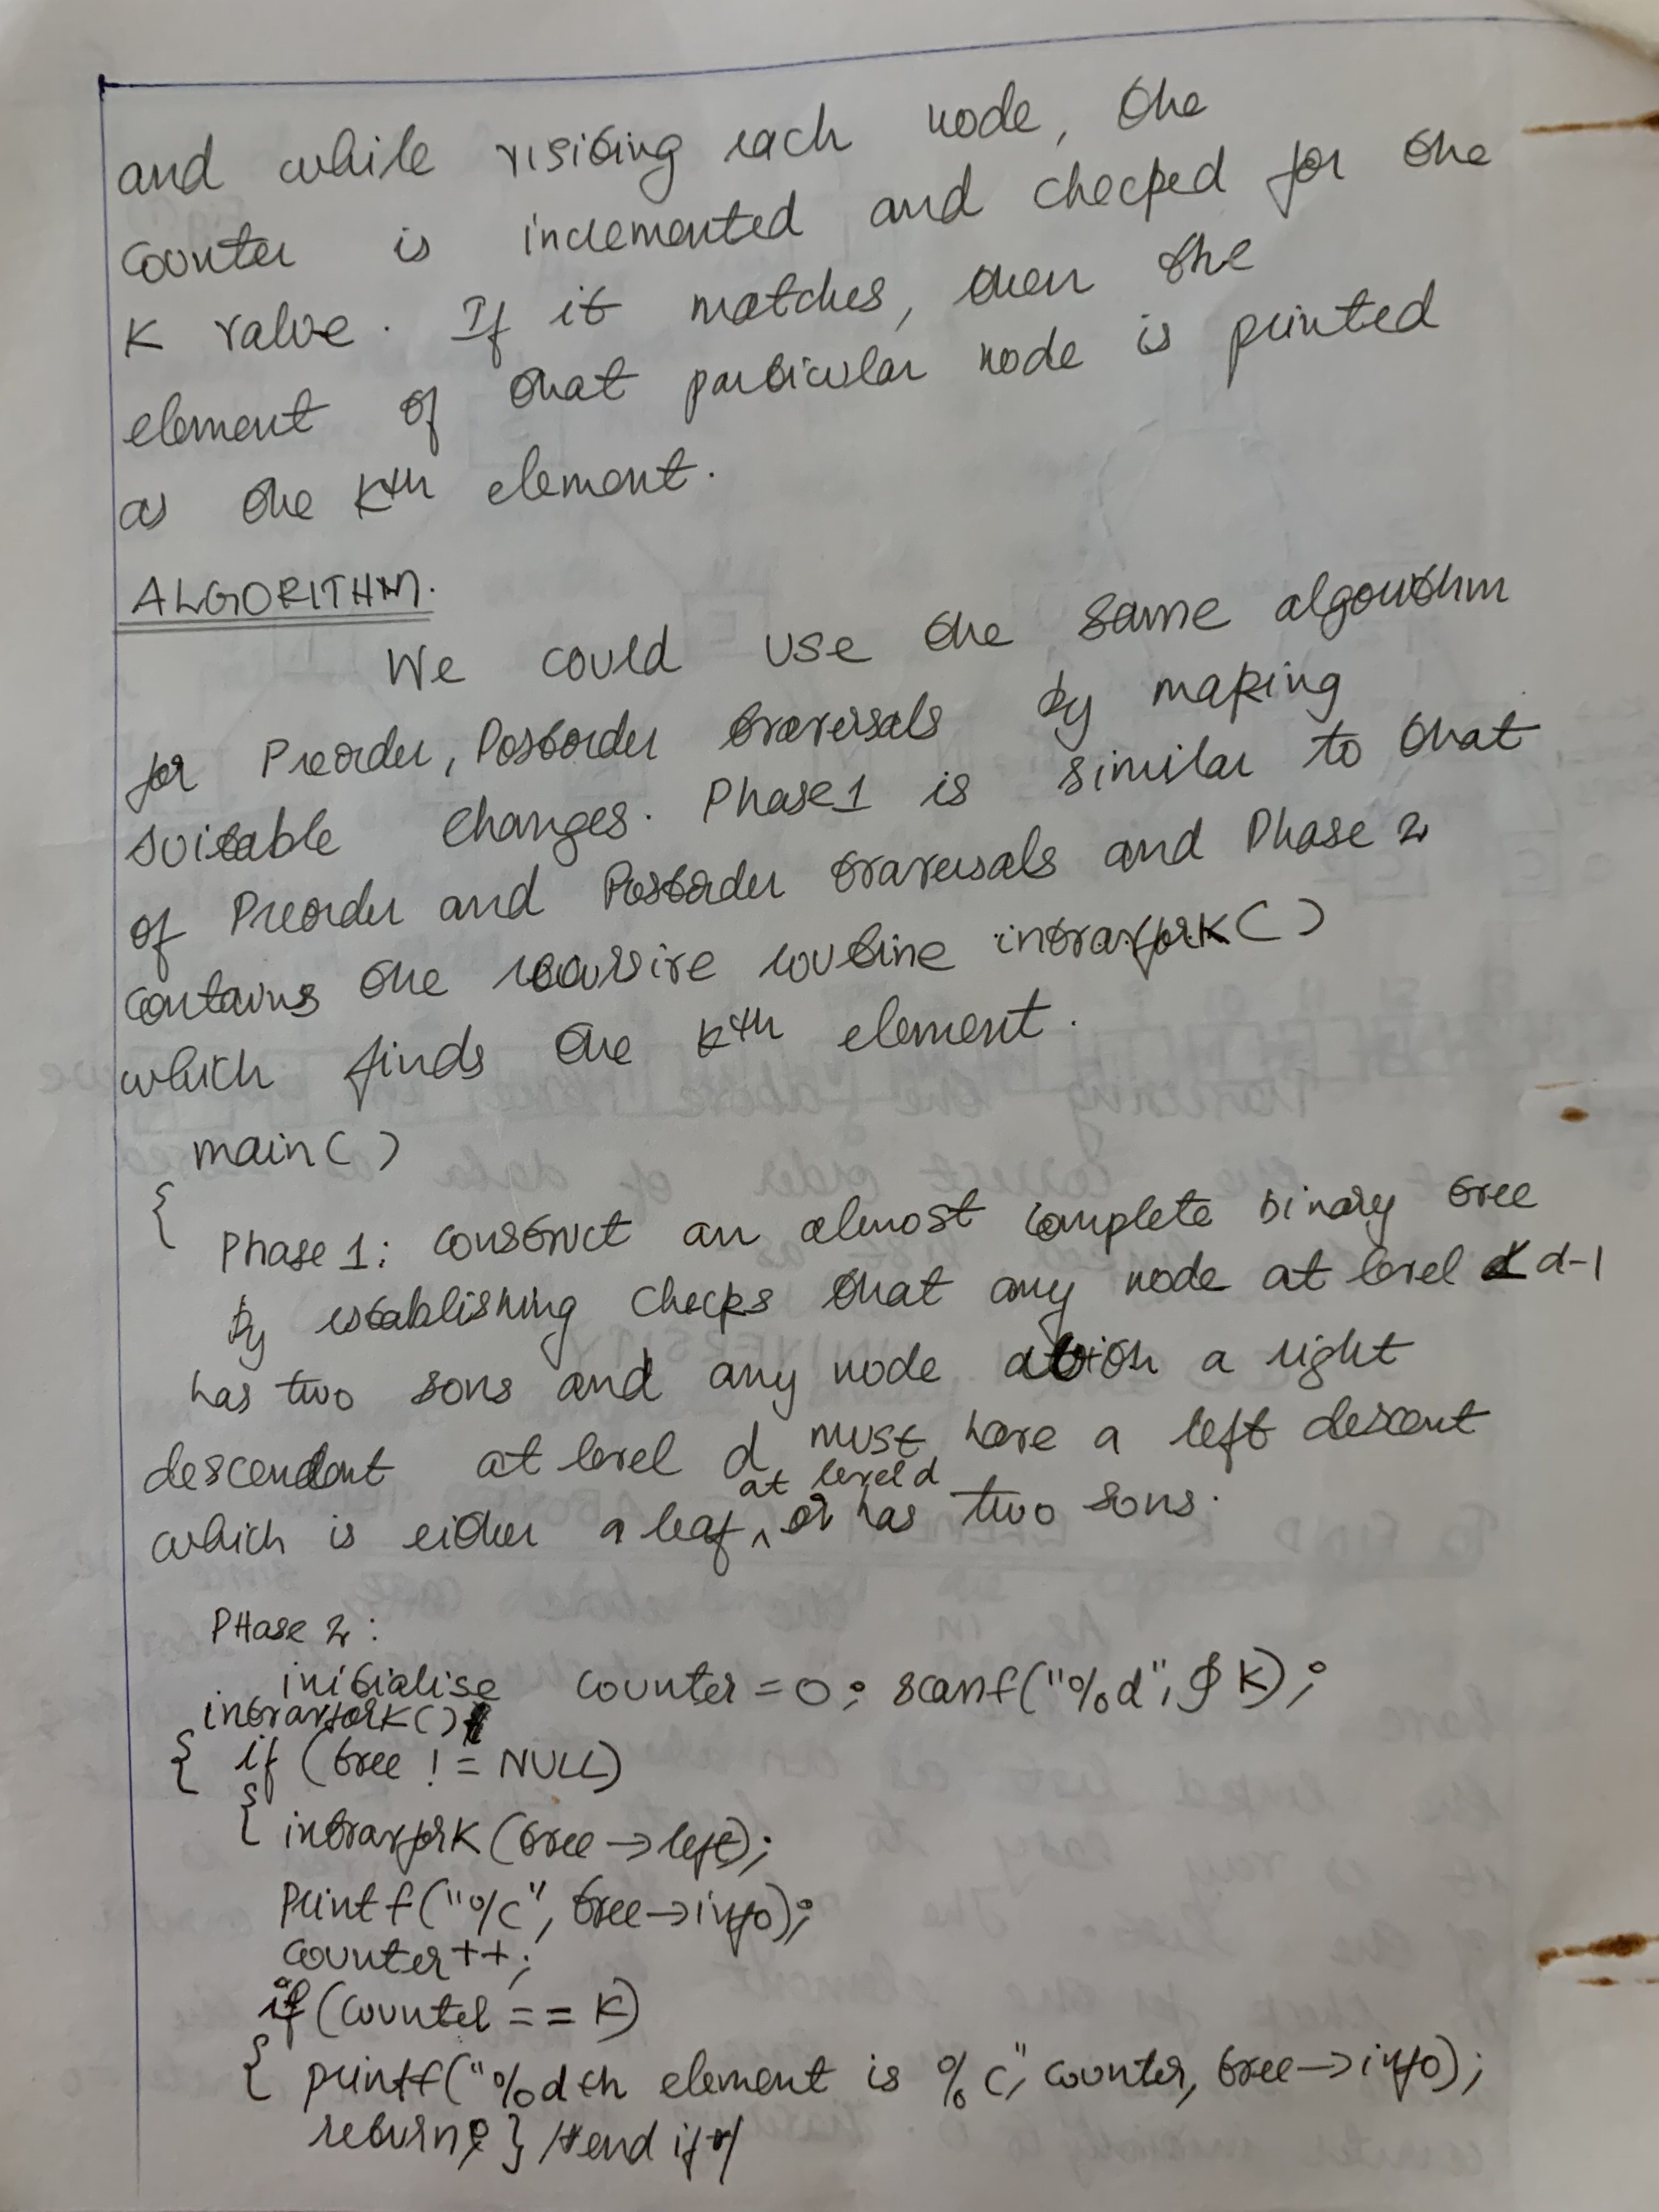 and while visiting each node, the
counter is incremented and checked for the
K value. If it matches, then the
element of that particular node is printed
as the Kth element.
ALGORITHM.
We could use the same algorithm
for Preorder, Postorder traversals by making
suitable changes. Phase1 is similar to that
of Preorder and Postorder traversals and Phase 2
contains the recursive routine intravforK()
which finds the kth element.
main()
{
Phase 1: construct an almost complete binary tree
by establishing checks that any node at level d-1
has two sons and any node with a right
descendant at level d must have a left descent
at level d
which is either a leaf ^ or has two sons.
PHase 2:
initialise counter = 0; scanf("%d", & K);
intravforK()
{ if (tree != NULL)
{ intravforK(tree->left);
printf("%c", tree->info);
counter++;
if (counter == K)
{ printf("%dth element is %c", counter, tree->info);
return; } /*end if*/